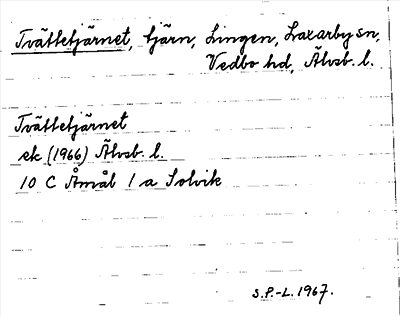 Tvättetjärnet, tjärn, Lingen, Laxarby sn,
Vedbo hd, Älvsb. l.
Tvättetjärnet
ek. (1966) Älvsb. l.
10 C Åmål 1 a Solvik
S.P.-L. 1967.